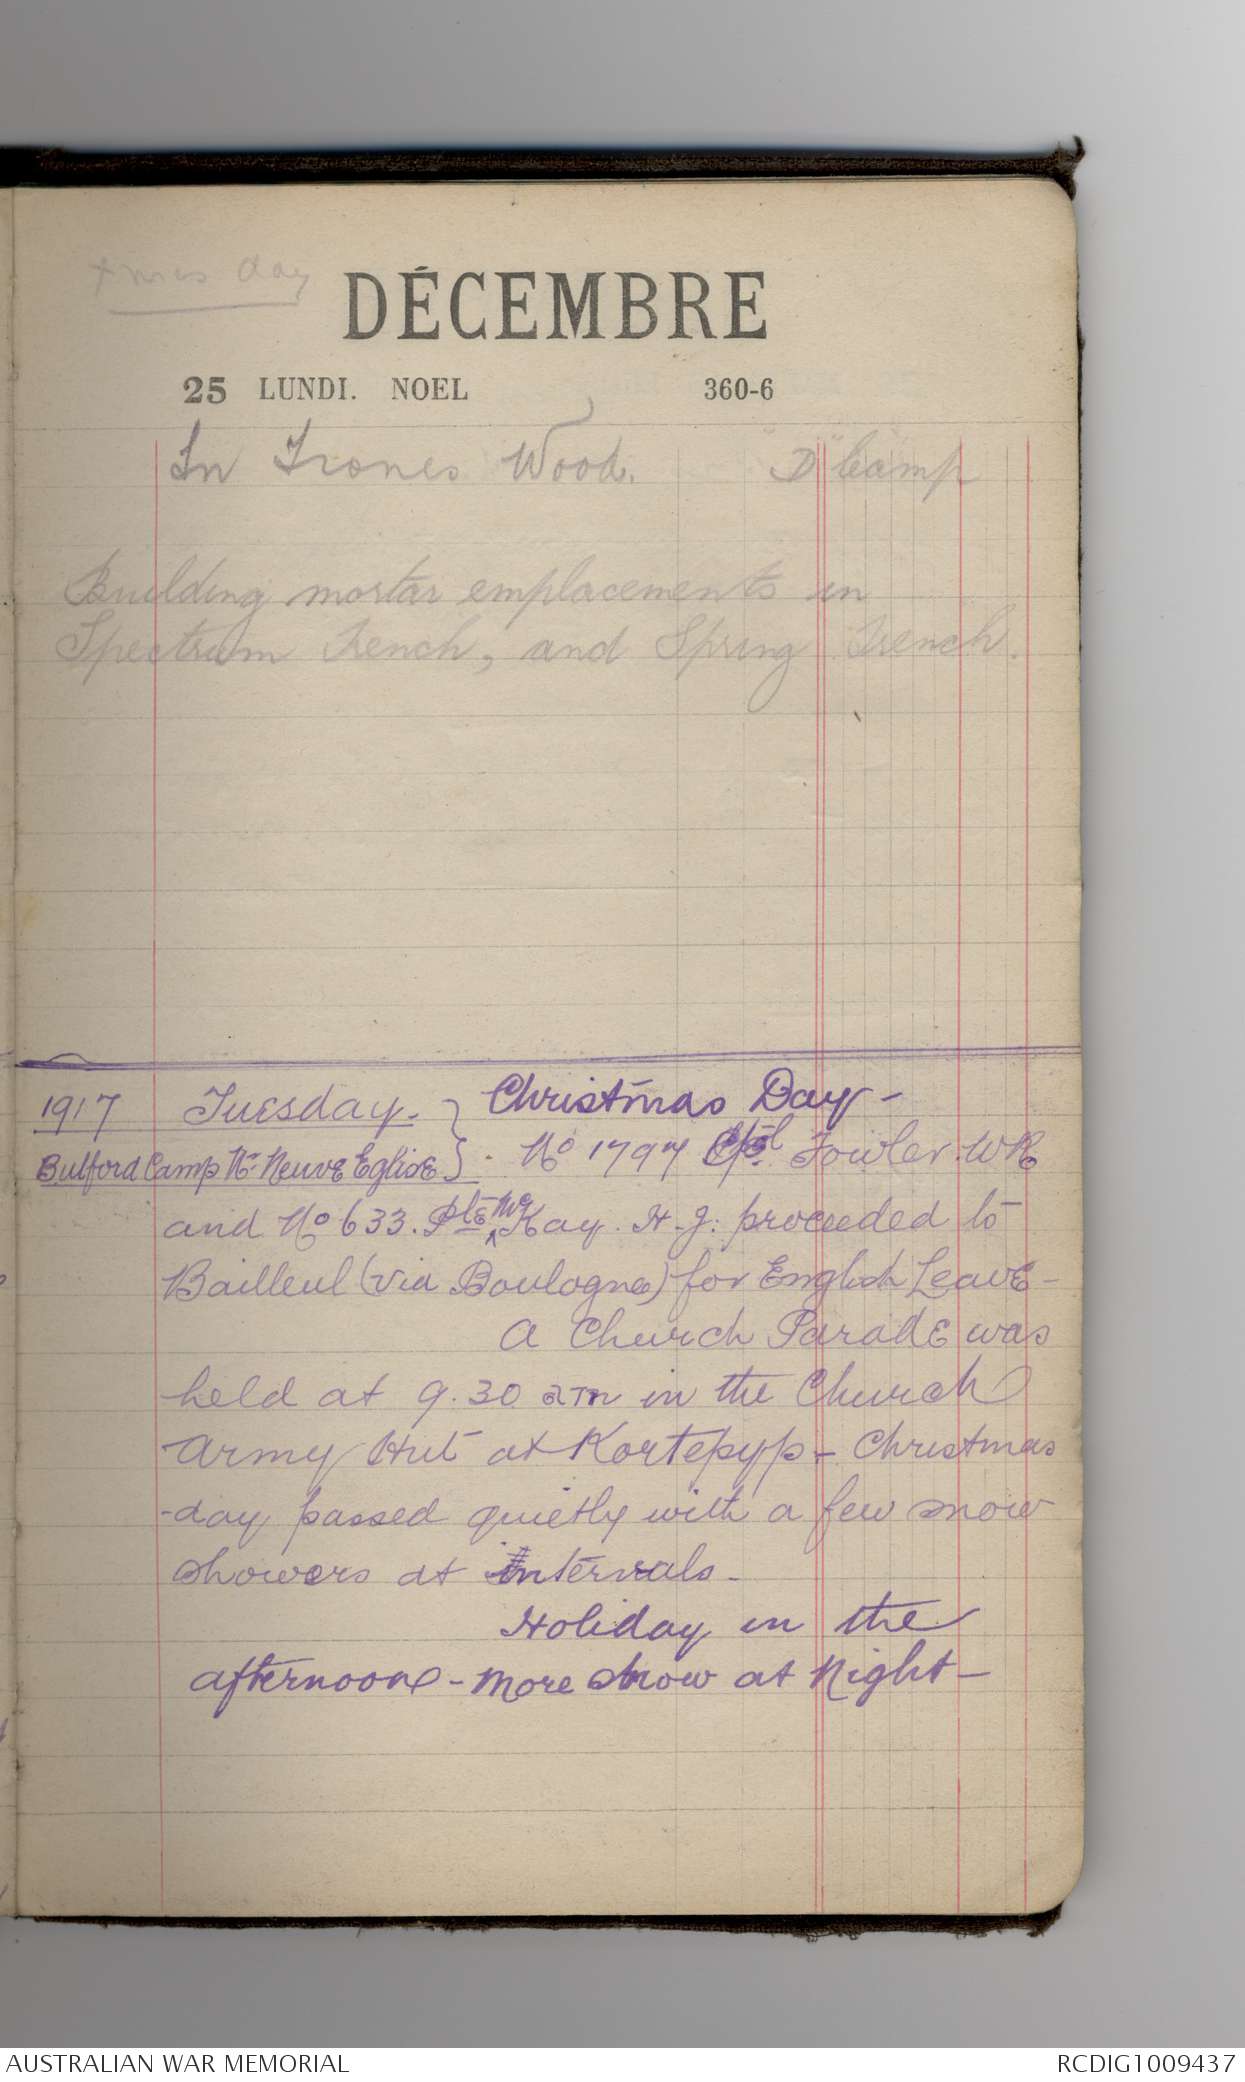 Xmas Day
DÉCEMBRE
25 LUNDI. NOEL 360-6
In Trones Wood. "D" Camp
Building mortar emplacements in
Spectrum Trench, and Spring Trench.
1917 Tuesday. } Christmas Day -
Bulford Camp Nr. Neuve Eglise } . No 1797 Cpl Fowler. WR
and No 633. Pte McKay. H.J: proceeded to
Bailleul (via Boulogne) for English Leave -
A Church Parade was
held at 9.30 am in the Church
Army Hut at Kortepyp - Christmas
-day passed quietly with a few snow
showers at intervals -
Holiday in the
afternoon - More snow at Night -
AUSTRALIAN WAR MEMORIAL RCDIG1009437